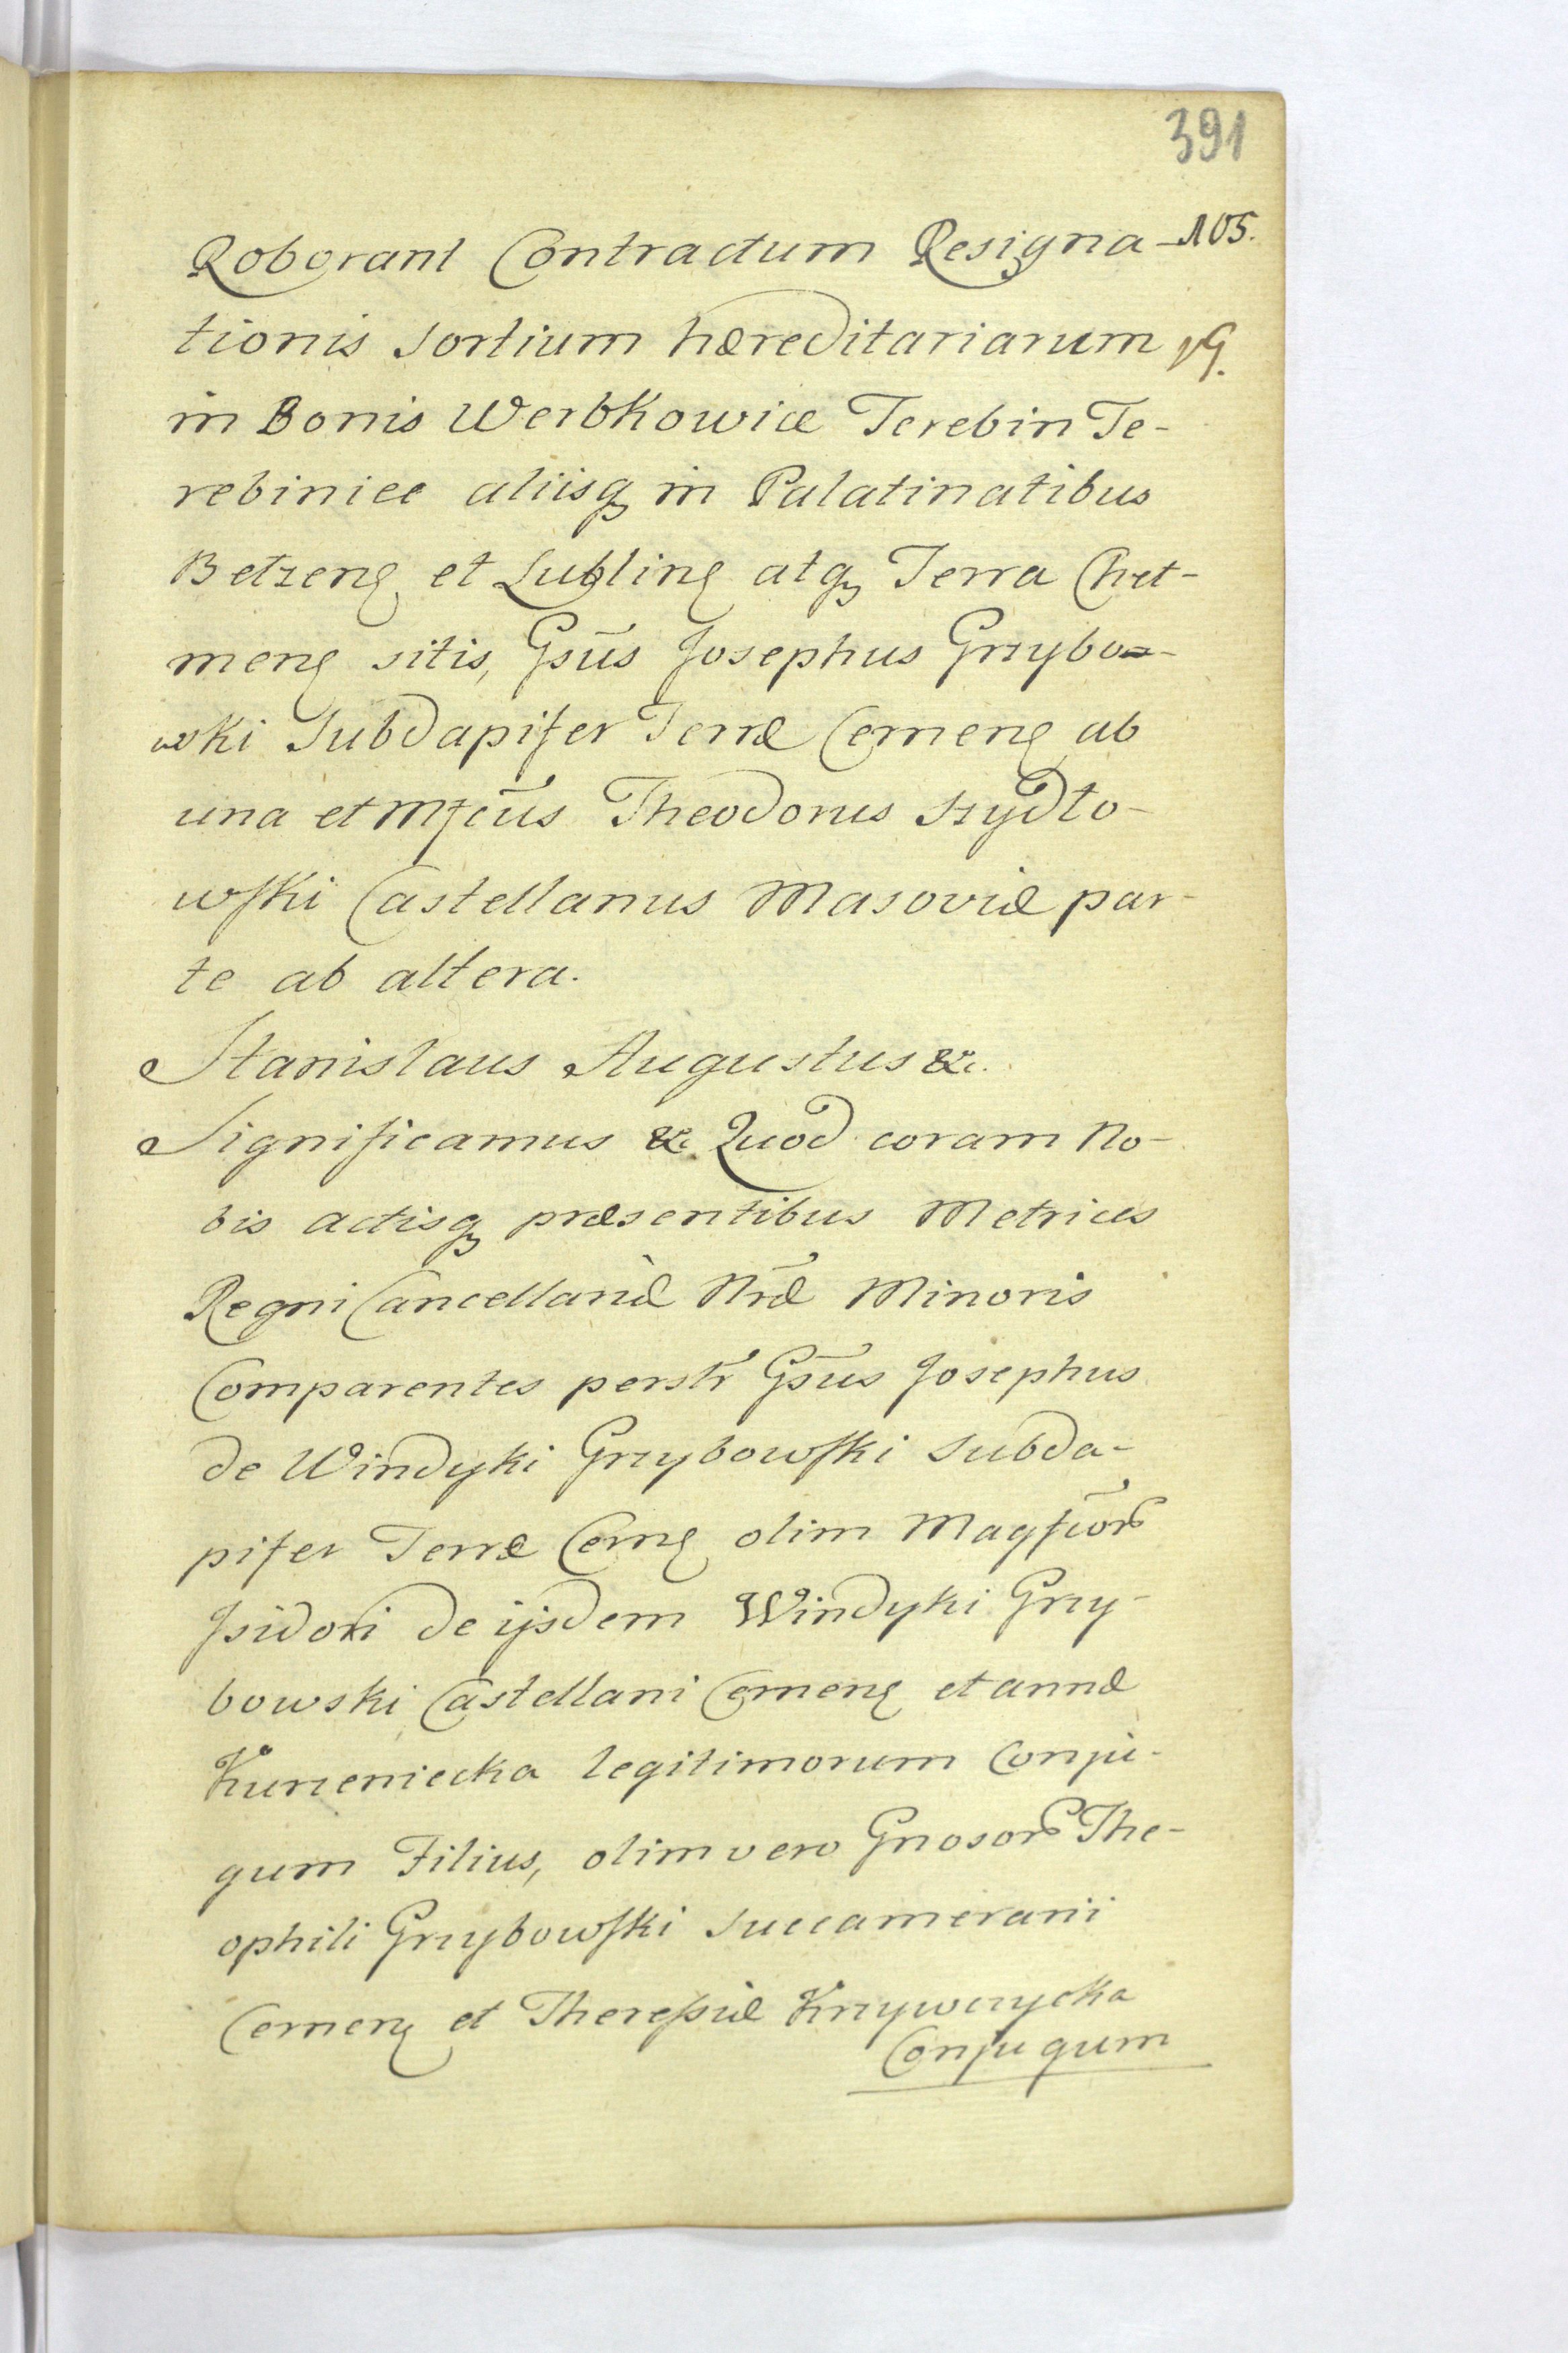 391
105.
Roborant Contractum Resigna-
tionis Sortium hæreditariarum
in Bonis Werbkowice Terebin Te-
rebiniec aliisq in Palatinatibus
Bełzens et Lublins atq Terra Cheł-
mens sitis, Gsūs Josephus Grzybo-
wki Subdapifer Terræ Cernens ab
una et Mfcūs Theodorus Szydło-
wski Castellanus Masoviæ par-
te ab altera.
Stanislaus Augustus &c.
Significamus &c. Quod coram No-
bis actisq præsentibus Metrices
Regni Cancellariæ Nræ Minoris
Comparentes perslr Gsūs Josephus
de Windyki Grzybowski Subda-
pifer Terræ Cerns olim Magfcor
Jsidori de ijsdem Windyki Grzy-
bowski Castellani Cernens et annæ
Kurzeniecka legitimorum Conju-
gum Filius, olim vero Gnosor The-
ophili Grzybowski Succamerarii
Cernens et Theressiæ Krzywczycka
Conjugum